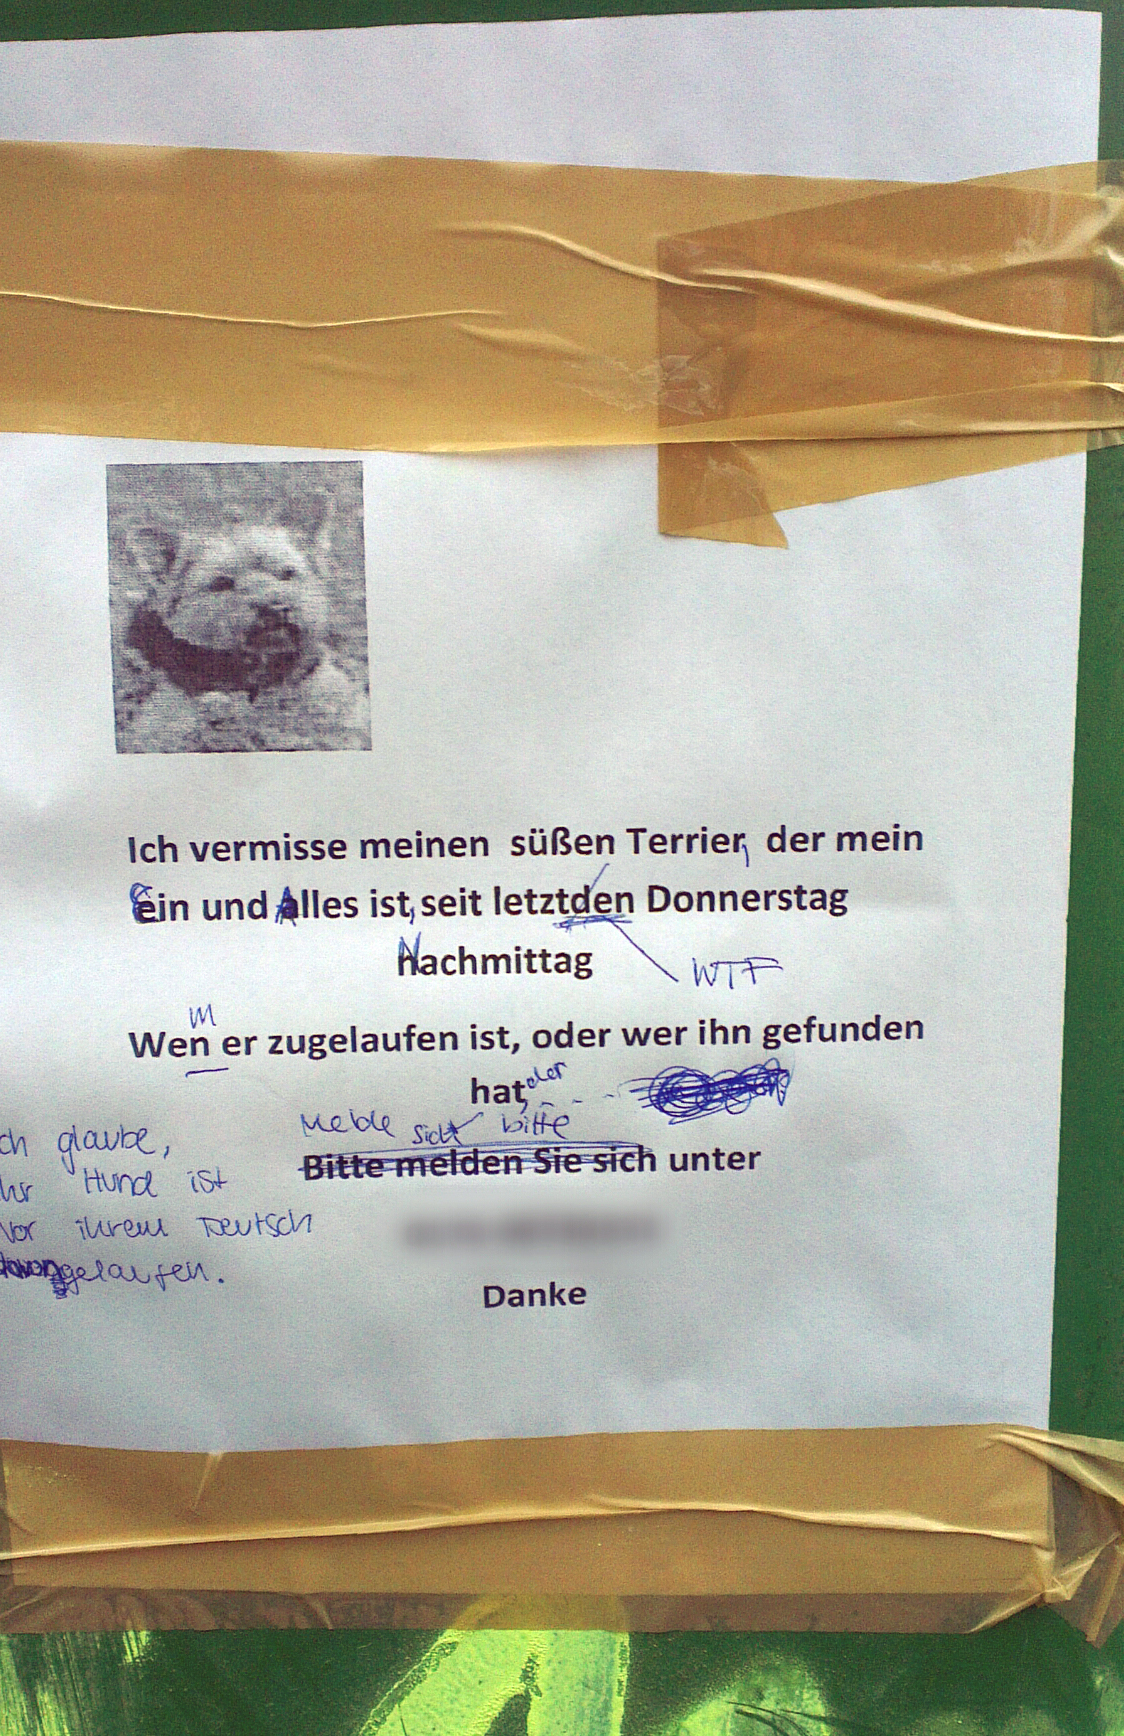 Ich vermisse meinen süßen Terrier, der mein
Ein und Alles ist, seit letztden Donnerstag
Nachmittag
WTF
m
Wen er zugelaufen ist, oder wer ihn gefunden
hat, der
Melde sich bitte
Bitte melden Sie sich unter
ch glaube,
hr Hund ist
vor ihrem Deutsch
davongelaufen.
Danke